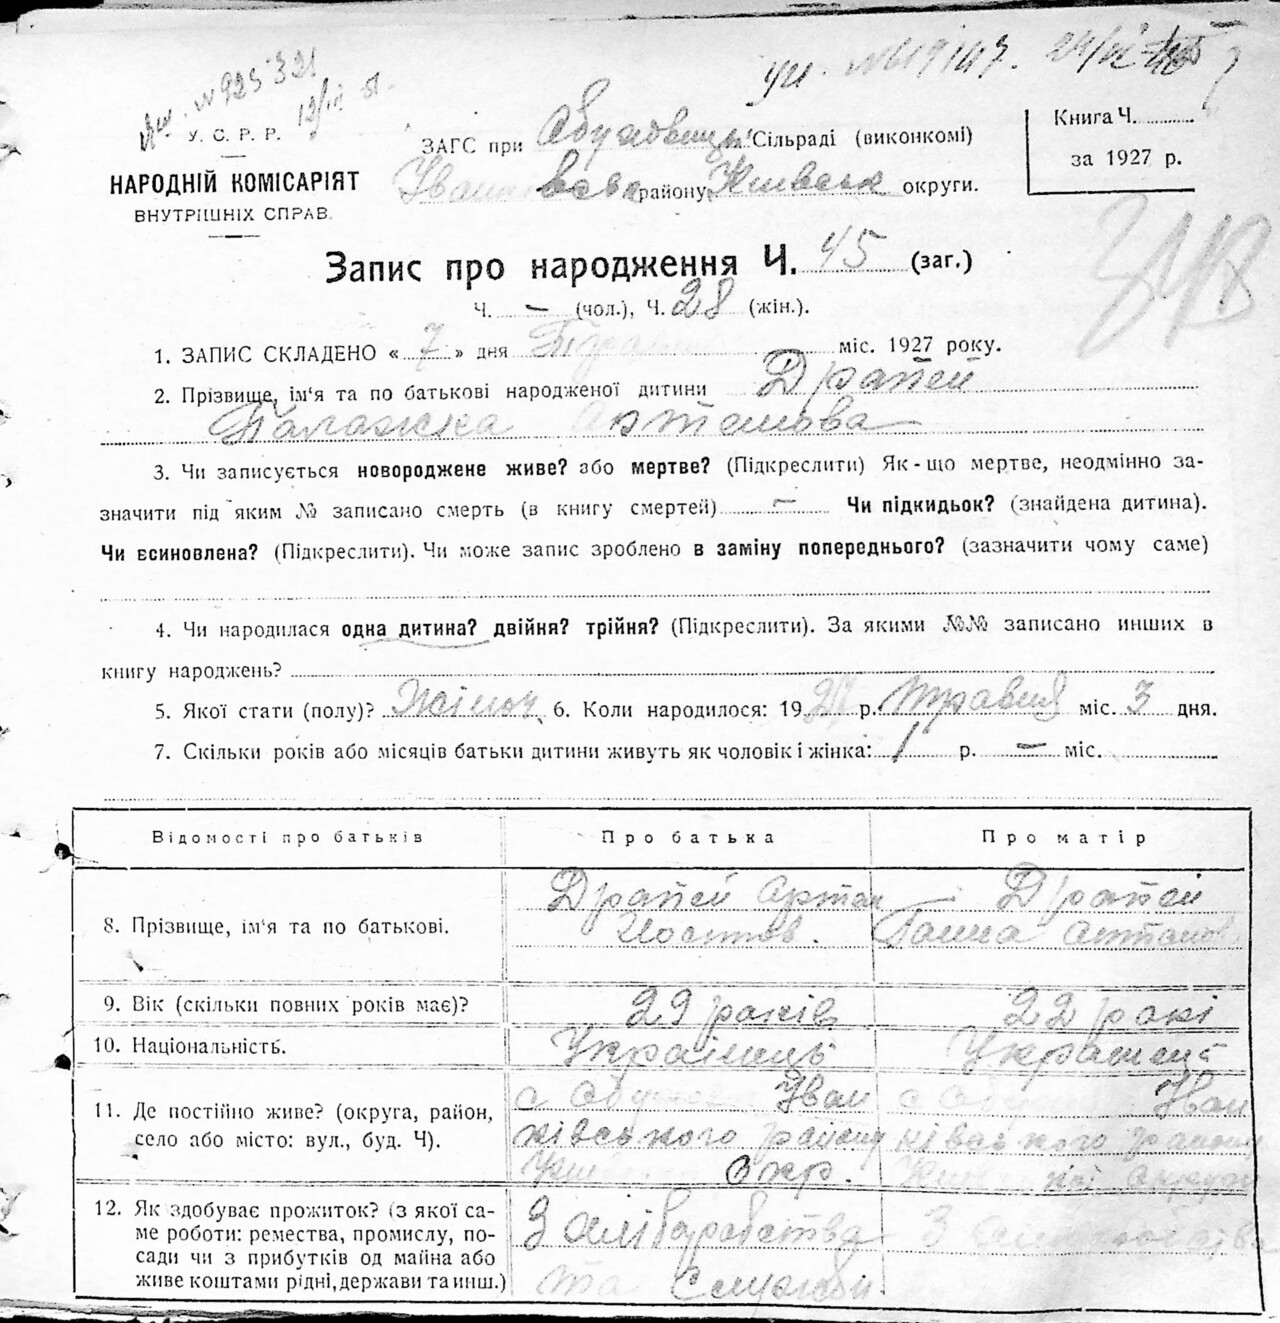 № 925321
У. С. Р. Р.
НАРОДНІЙ КОМІСАРІЯТ
ВНУТРІШНІХ СПРАВ.
ЗАГС при Сільраді (виконкомі)
району, округи.
Книга Ч.
за 1927 р.
Запис про народження Ч. 45 (заг.)
Ч. — (чол.), Ч. 28 (жін.).
1. ЗАПИС СКЛАДЕНО « 7 » дня Травня міс. 1927 року.
2. Прізвище, ім'я та по батькові народженої дитини Драпей
Палажка Артемова
3. Чи записується новороджене живе? або мертве? (Підкреслити) Як-що мертве, неодмінно за-
значити під яким № записано смерть (в книгу смертей) — Чи підкидьок? (знайдена дитина).
Чи всиновлена? (Підкреслити). Чи може запис зроблено в заміну попереднього? (зазначити чому саме)
4. Чи народилася одна дитина? двійня? трійня? (Підкреслити). За якими №№ записано инших в
книгу народжень?
5. Якої стати (полу)? Жіноч. 6. Коли народилося: 1927 р. травня міс. 3 дня.
7. Скільки років або місяців батьки дитини живуть як чоловік і жінка: 1 р. — міс.
Відомості про батьків Про батька Про матір
8. Прізвище, ім'я та по батькові.
Драпей Артем
Драпей
Ганна
9. Вік (скільки повних років має)? 29 років 22 рокі
10. Національність. Українець
11. Де постійно живе? (округа, район,
село або місто: вул., буд. Ч).
с Іван
ківського району
Окр.
с Іван
ківського району
12. Як здобуває прожиток? (з якої са-
ме роботи: ремества, промислу, по-
сади чи з прибутків од майна або
живе коштами рідні, держави та инш.)
З хліборобства
та служби
З